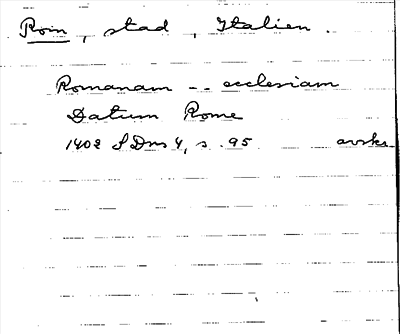 Rom, stad, Italien.
Romanam -- ecclesiam
Datum Rome
1402 SDns 4, s. 95 avskr.